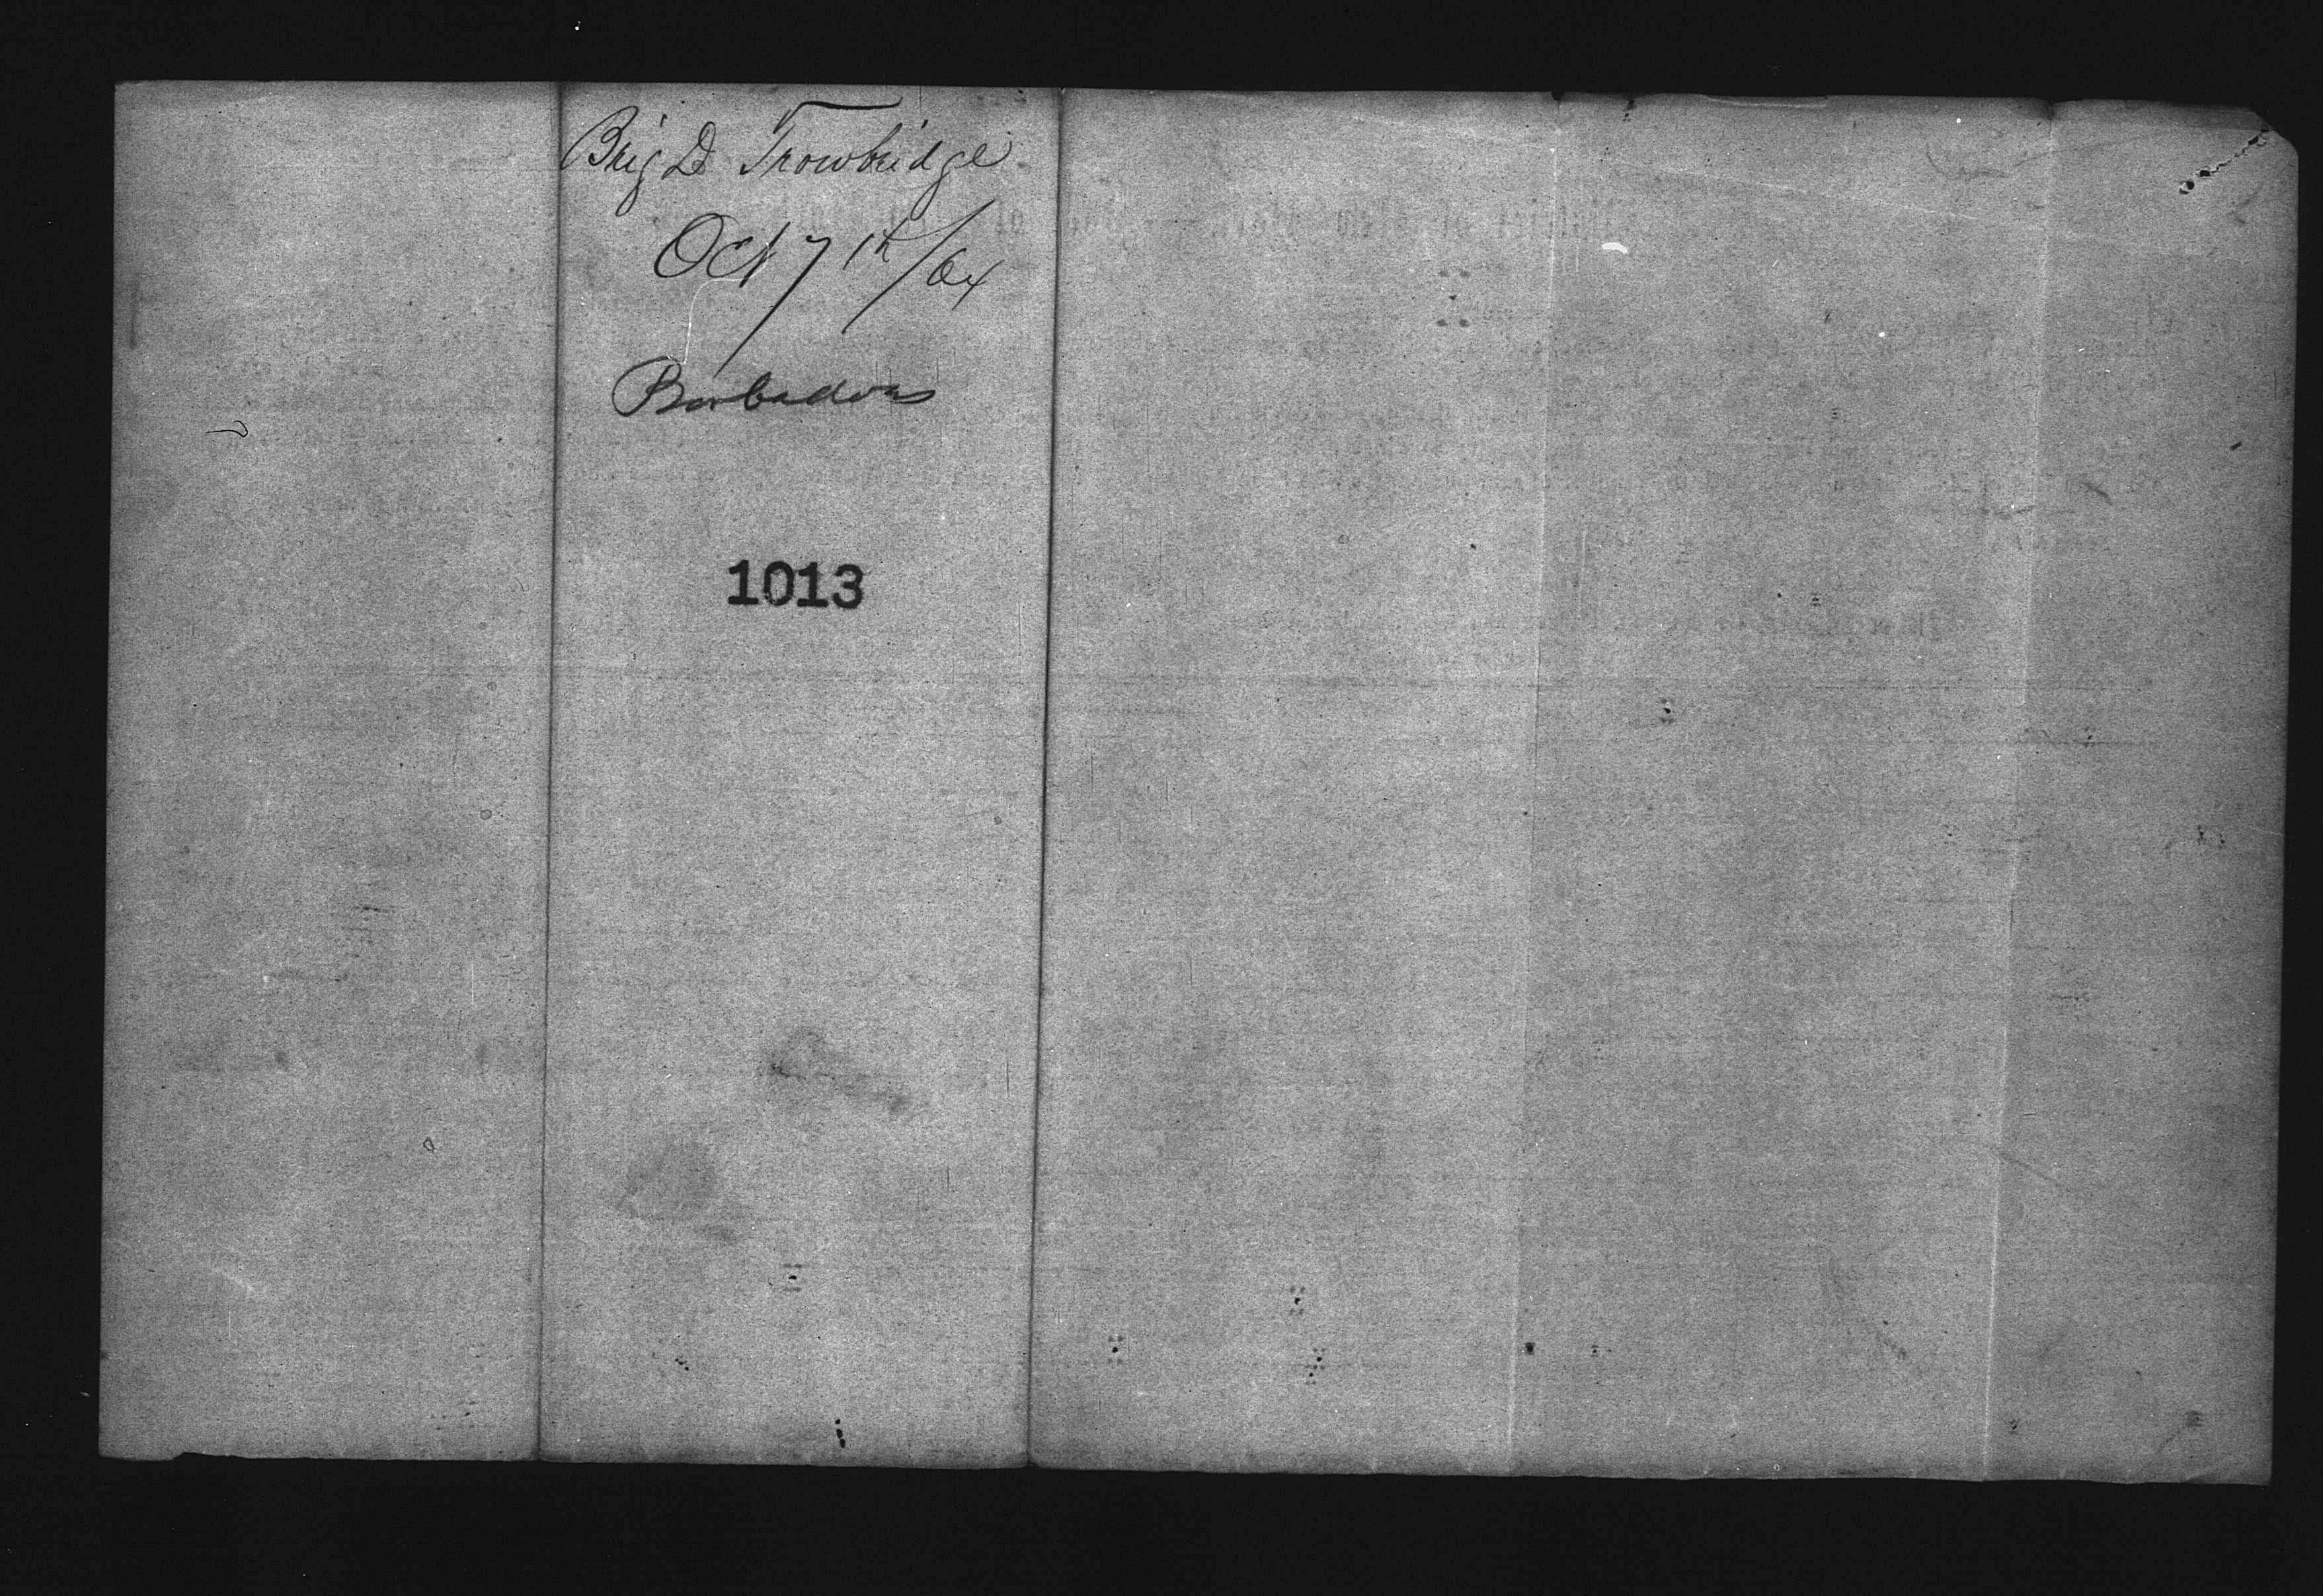 Brig D Trowbridge
Oct 7th/64
Barbadoes
1013